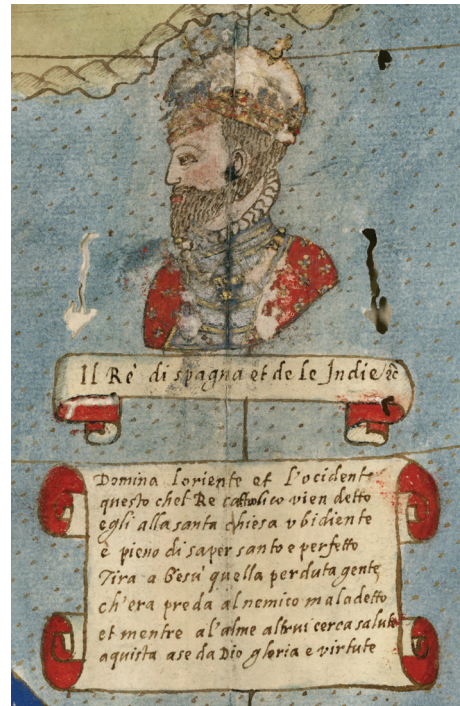 Il Re di spagna et de le Indie &c
Domina loriente et l'ocidente
questo chel Re cattolico vien detto
egli alla santa chiesa vbidiente
è pieno di saper santo e perfetto
Tira a Giesù quella perduta gente
ch'era preda al nemico maladetto
et mentre al'alme altrui cerca salute
aquista a se da Dio gloria e virtute